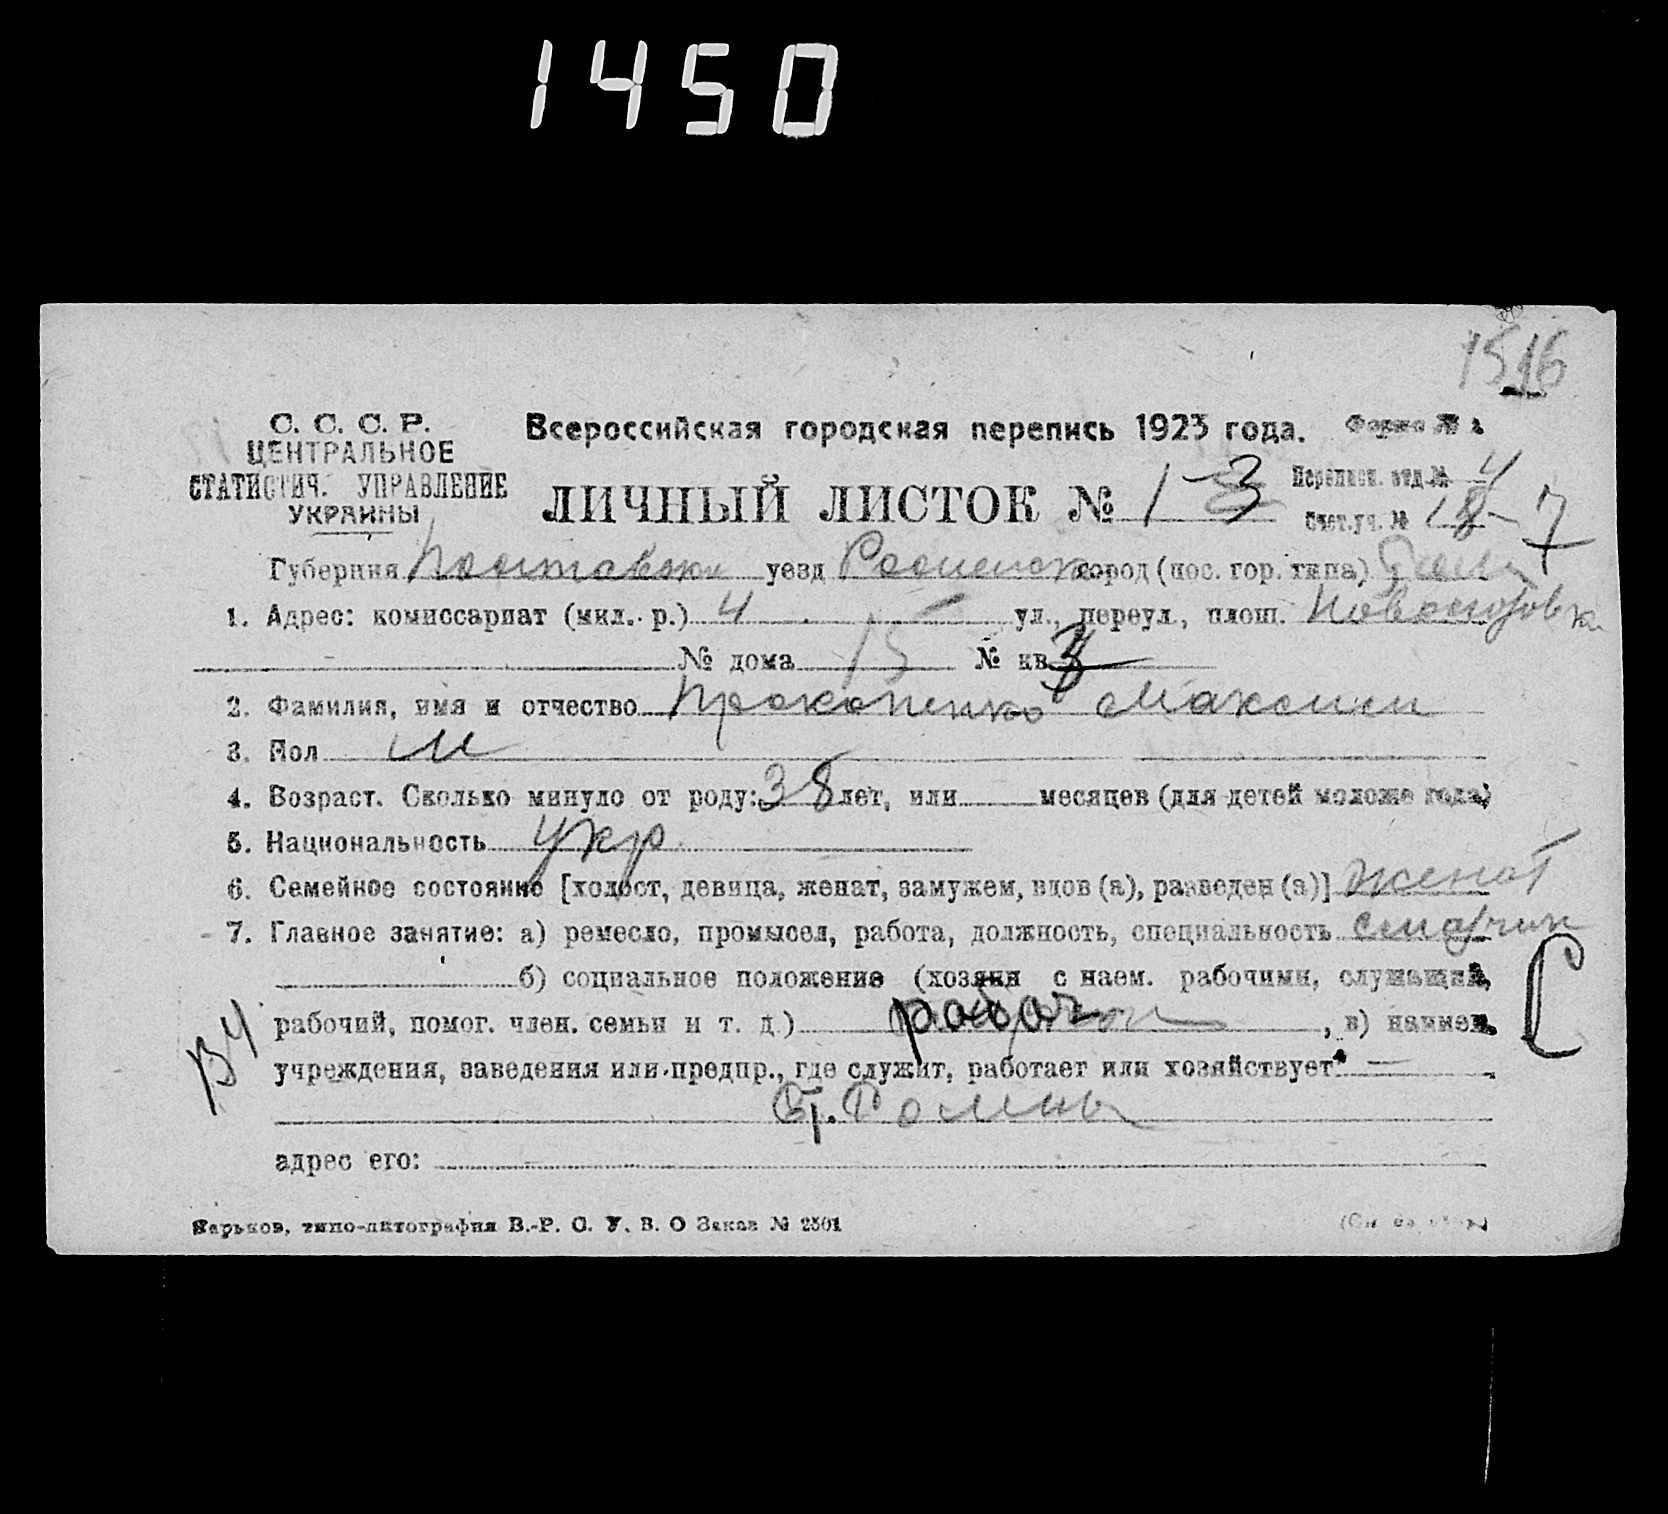 1450
1516
С. С. С. Р.
ЦЕНТРАЛЬНОЕ
СТАТИСТИЧ. УПРАВЛЕНИЕ
УКРАИНЫ
Всероссийская городская перепись 1923 года. Форма №
ЛИЧНЫЙ ЛИСТОК № 1 3
Переписн. отд. № 4
Счет. уч. № 18 7
Губерния Полтавск уезд Роменск город (пос. гор. типа) Ромн
1. Адрес: комиссариат (мил. р.) 4 ул., переул., площ.
№ дома 15 № кв. 3
2. Фамилия, имя и отчество Прокопенко Максим
3. Пол м
4. Возраст. Сколько минуло от роду: 38 лет, или месяцев (для детей моложе года)
5. Национальность укр
6. Семейное состояние [холост, девица, женат, замужем, вдов (а), разведен (а)] женат
7. Главное занятие: а) ремесло, промысел, работа, должность, специальность смазчик
б) социальное положение (хозяин с наем. рабочими, служащий,
рабочий, помог. член. семьи и т. д.) рабоч , в) наимен.
учреждения, заведения или предпр., где служит, работает или хозяйствует:
Ст. Ромны
адрес его:
В4
С
Харьков, типо-литография В.-Р. С. У. В. О Заказ № 2501